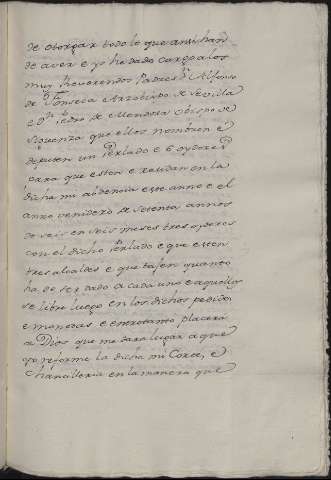 de otorgar todo lo que ansi han
de aver e yo he dado cargo a los
muy Reverendos Padres Dn Alfonso
de Fonseca Arzobispo de Sevilla
e Dn Pedro de Mendoza Obispo de
Siguenza que ellos nombren e
deputen un Perlado e 6 oydores
para que esten e residan en la
dicha mi abdencia este anno e el
anno venidero de setenta annos
de seis en seis meses tres oydores
con el dicho Perlado e que esten
tres alcaldes e que tasen quanto
ha de ser dado a cada uno e aquello
se libre luego en los dichos pedidos
e monedas e entretanto placerá
a Dios que me dara lugar a que
yo reforme la dicha mi Corte, e
Chancilleria en la manera que